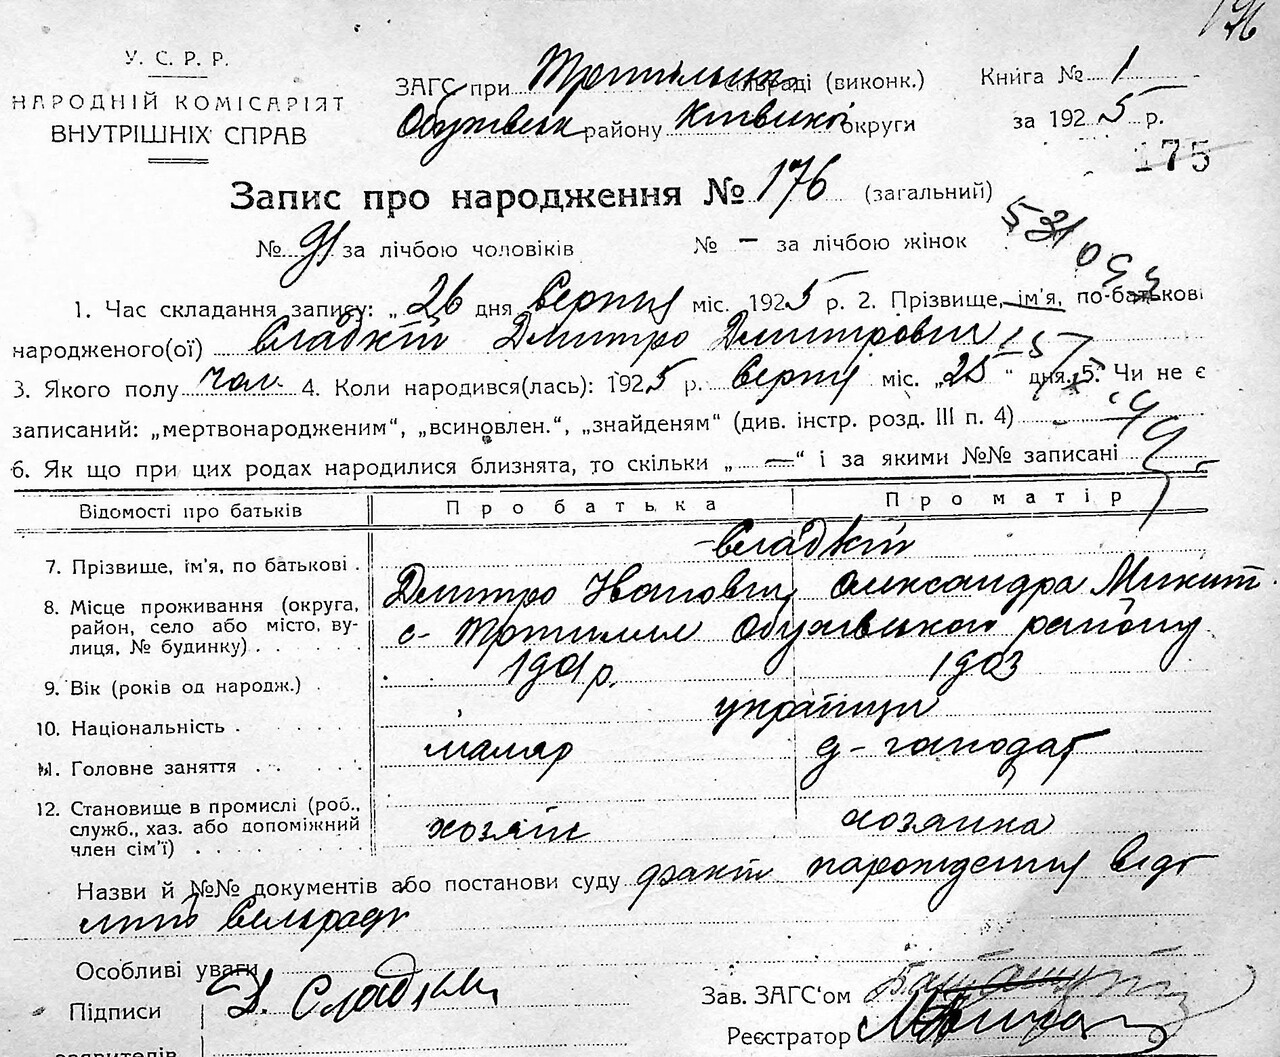 У. С. Р. Р.
НАРОДНІЙ КОМІСАРІЯТ
ВНУТРІШНІХ СПРАВ
196
ЗАГС при сільраді (виконк.)
району округи
Книга № 1
за 1925 р.
175
Запис про народження № 176 (загальний)
№ 91 за лічбою чоловіків № – за лічбою жінок
1. Час складання запису: „26 дня серпня міс. 1925 р. 2. Прізвище, ім'я, по-батькові
народженого(ої) Сладкій Дмитро Дмитрович
3. Якого полу чол. 4. Коли народився(лась): 1925 р. серпня міс. „25“ дня. 5. Чи не є
записаний: „мертвонародженим“, „всиновлен.“, „знайденям“ (див. інстр. розд. III п. 4) –
6. Як що при цих родах народилися близнята, то скільки „ — “ і за якими №№ записані
Відомості про батьків Про батька Про матір
7. Прізвище, ім'я, по батькові . Сладкій
Дмитро Іванович Олександра Микит
8. Місце проживання (округа, район, село або місто, вулиця, № будинку) . . . . . с. Обухівського району
9. Вік (років од народж.) . 1901 р. 1903
10. Національність . . . . . українци
11. Головне заняття . . . маляр д-господар
12. Становище в промислі (роб., служб., хаз. або допоміжний член сім'ї) . . . . . . . хозяїн хозяйка
Назви й №№ документів або постанови суду факт народження відо
мий Сельраді
Особливі уваги
Підписи Д. Сладкий
заявителів
Зав. ЗАГС'ом
Реєстратор